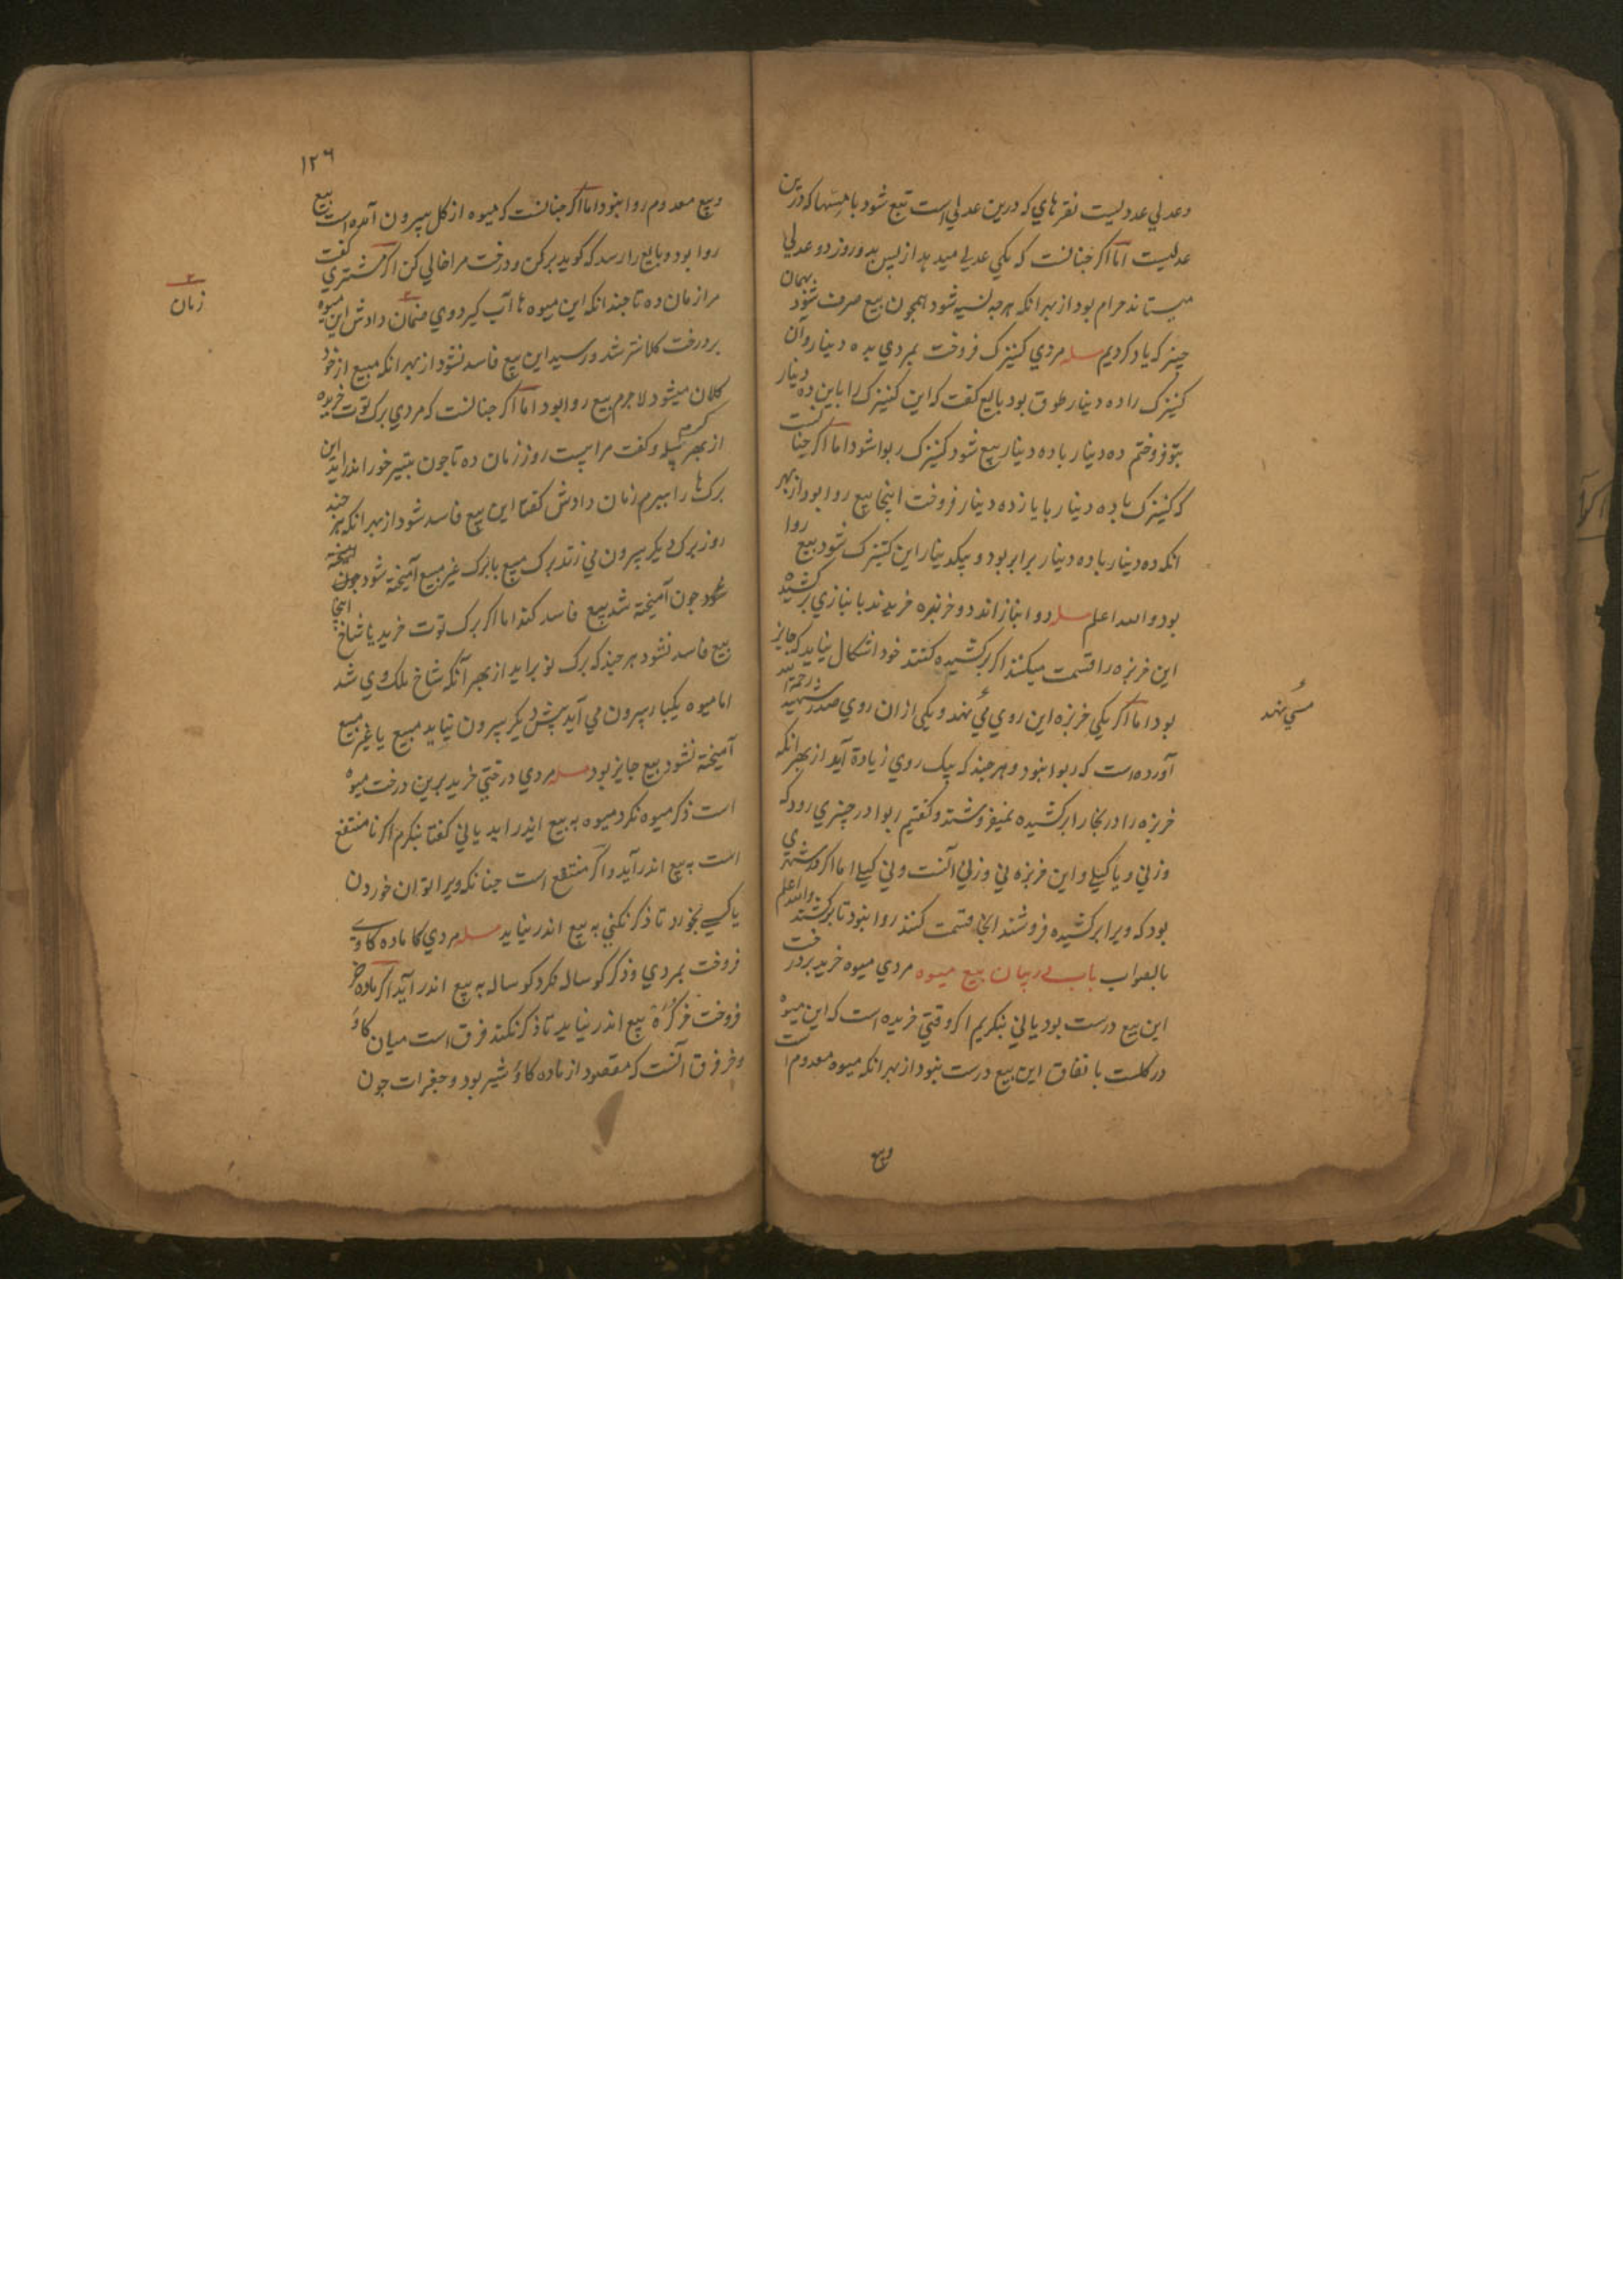 وعدلي عدديست نقرهاي كه درين عدلي است تبع شود بامسها كه درين
عدليست اما اكر جنانست كه يكي عدلي ميدهد از پس يد وروز دو عدلي
ميستاند حرام بود از بهر انكه هرجه نسيه شود همجون بيع صرف شود بهمان
جيز كه ياد كرديم مسله مردي كنيزك فروخت بمردي بده دينار وآن
كنيزك را ده دينار طوق بود بايع كفت كه اين كنيزك را باين ده دينار
بتو فروختم ده دينار باده دينار بيع شود كنيزك ربوا شود اما اكر جنانست
كه كنيزك باده دينار بايازده دينار فروخت اينجا بيع روا بود از بهر
انكه ده دينار باده دينار برابر بود و يكدينار اين كنيزك شود بيع روا
بود والله اعلم مسله دو انباز اند دو خربزه خريدند بانبازي بركشيده
اين خربزه را قسمت ميكنند اكر بركشيده كنند خود اشكال نيايد كه جايز
بود اما اكر يكي خربزه اين روي مي نهد و يكي ازان روي صدر شهيد رحمة الله
آورده است كه ربوا نبود و هرجند كه بيك روي زيادة آيد از بهر انكه
خربزه را در بخارا بركشيده نميفروشند و كفتيم ربوا در جيزي رود كه
وزني و يا كيلي و اين خربزه ني وزني آنست و ني كيلي اما اكر در شهري
بود كه ويرا بركشيده فروشند انجا قسمت كنند روا نبود تا بركشند والله اعلم
بالصواب باب در بيان بيع ميوه مردي ميوه خريد بر درخت
اين بيع درست بود ياني بنكريم اكر وقتي خريده است كه اين ميوه
در كلست باتفاق اين بيع درست نبود از بهر انكه ميوه معدوم است
وبيع
مي نهد
١٢٦
وبيع معدوم روا نبود اما اكر جنانست كه ميوه از كل بيرون آمده است بيع
روا بود و بايع را رسد كه كويد بركن و درخت مرا خالي كن اكر مشتري كفت
مرا زمان ده تا جندانكه اين ميوه ها آب كيرد وي ضمان دادش اين ميوه
بر درخت كلانتر شد و رسيد اين بيع فاسد نشود از بهر انكه مبيع از خود
كلان ميشود لاجرم بيع روا بود اما اكر جنانست كه مردي برك توت خريده
از بهر كرم پيله و كفت مرا بيست روز زمان ده تا جون بتير خور اندر آيد اين
برك ها را ببرم زمان دادش كفتا اين بيع فاسد شود از بهر انكه هر جند
روز برك ديكر بيرون مي زند برك مبيع با برك غير مبيع آميخته شود جون
شود جون آميخته شد بيع فاسد كند اما اكر برك توت خريد با شاخ اينجا
بيع فاسد نشود هر جند كه برك نو برايد از بهر آنكه شاخ ملك وي شد
اما ميوه يكبار بيرون مي آيد پيش ديكر بيرون نيايد مبيع با غير مبيع
آميخته نشود بيع جايز بود مسله مردي درختي خريد برين درخت ميوه
است ذكر ميوه نكرد ميوه به بيع اندر آيد ياني كفتا بنكرم اكر نامنتفع
است به بيع اندر آيد و اكر منتفع است جنانكه ويرا توان خوردن
يا كسي بخورد تا ذكر نكني به بيع اندر نيايد مسله مردي كا ماده كاوي
فروخت بمردي و ذكر كوساله نكرد كوساله به بيع اندر آيد اكر ماده خر
فروخت خر كره ببيع اندر نيايد تا ذكر نكند فرق است ميان كاؤ
و خر فرق آنست كه مقصود از ماده كاؤ شير بود و جغرات جون
زمان